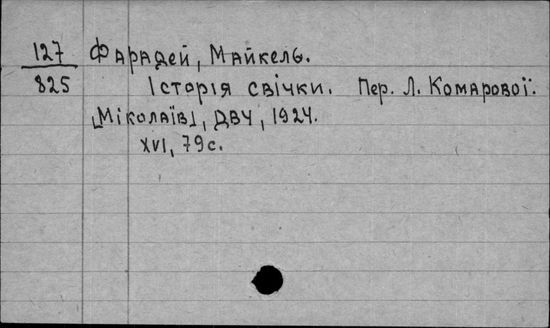 127 Фарадей, Майкель.
825 Історія свічки. Пер. Л. Комарової.
[Міколаїв], ДВУ, 1924.
XVI, 79с.